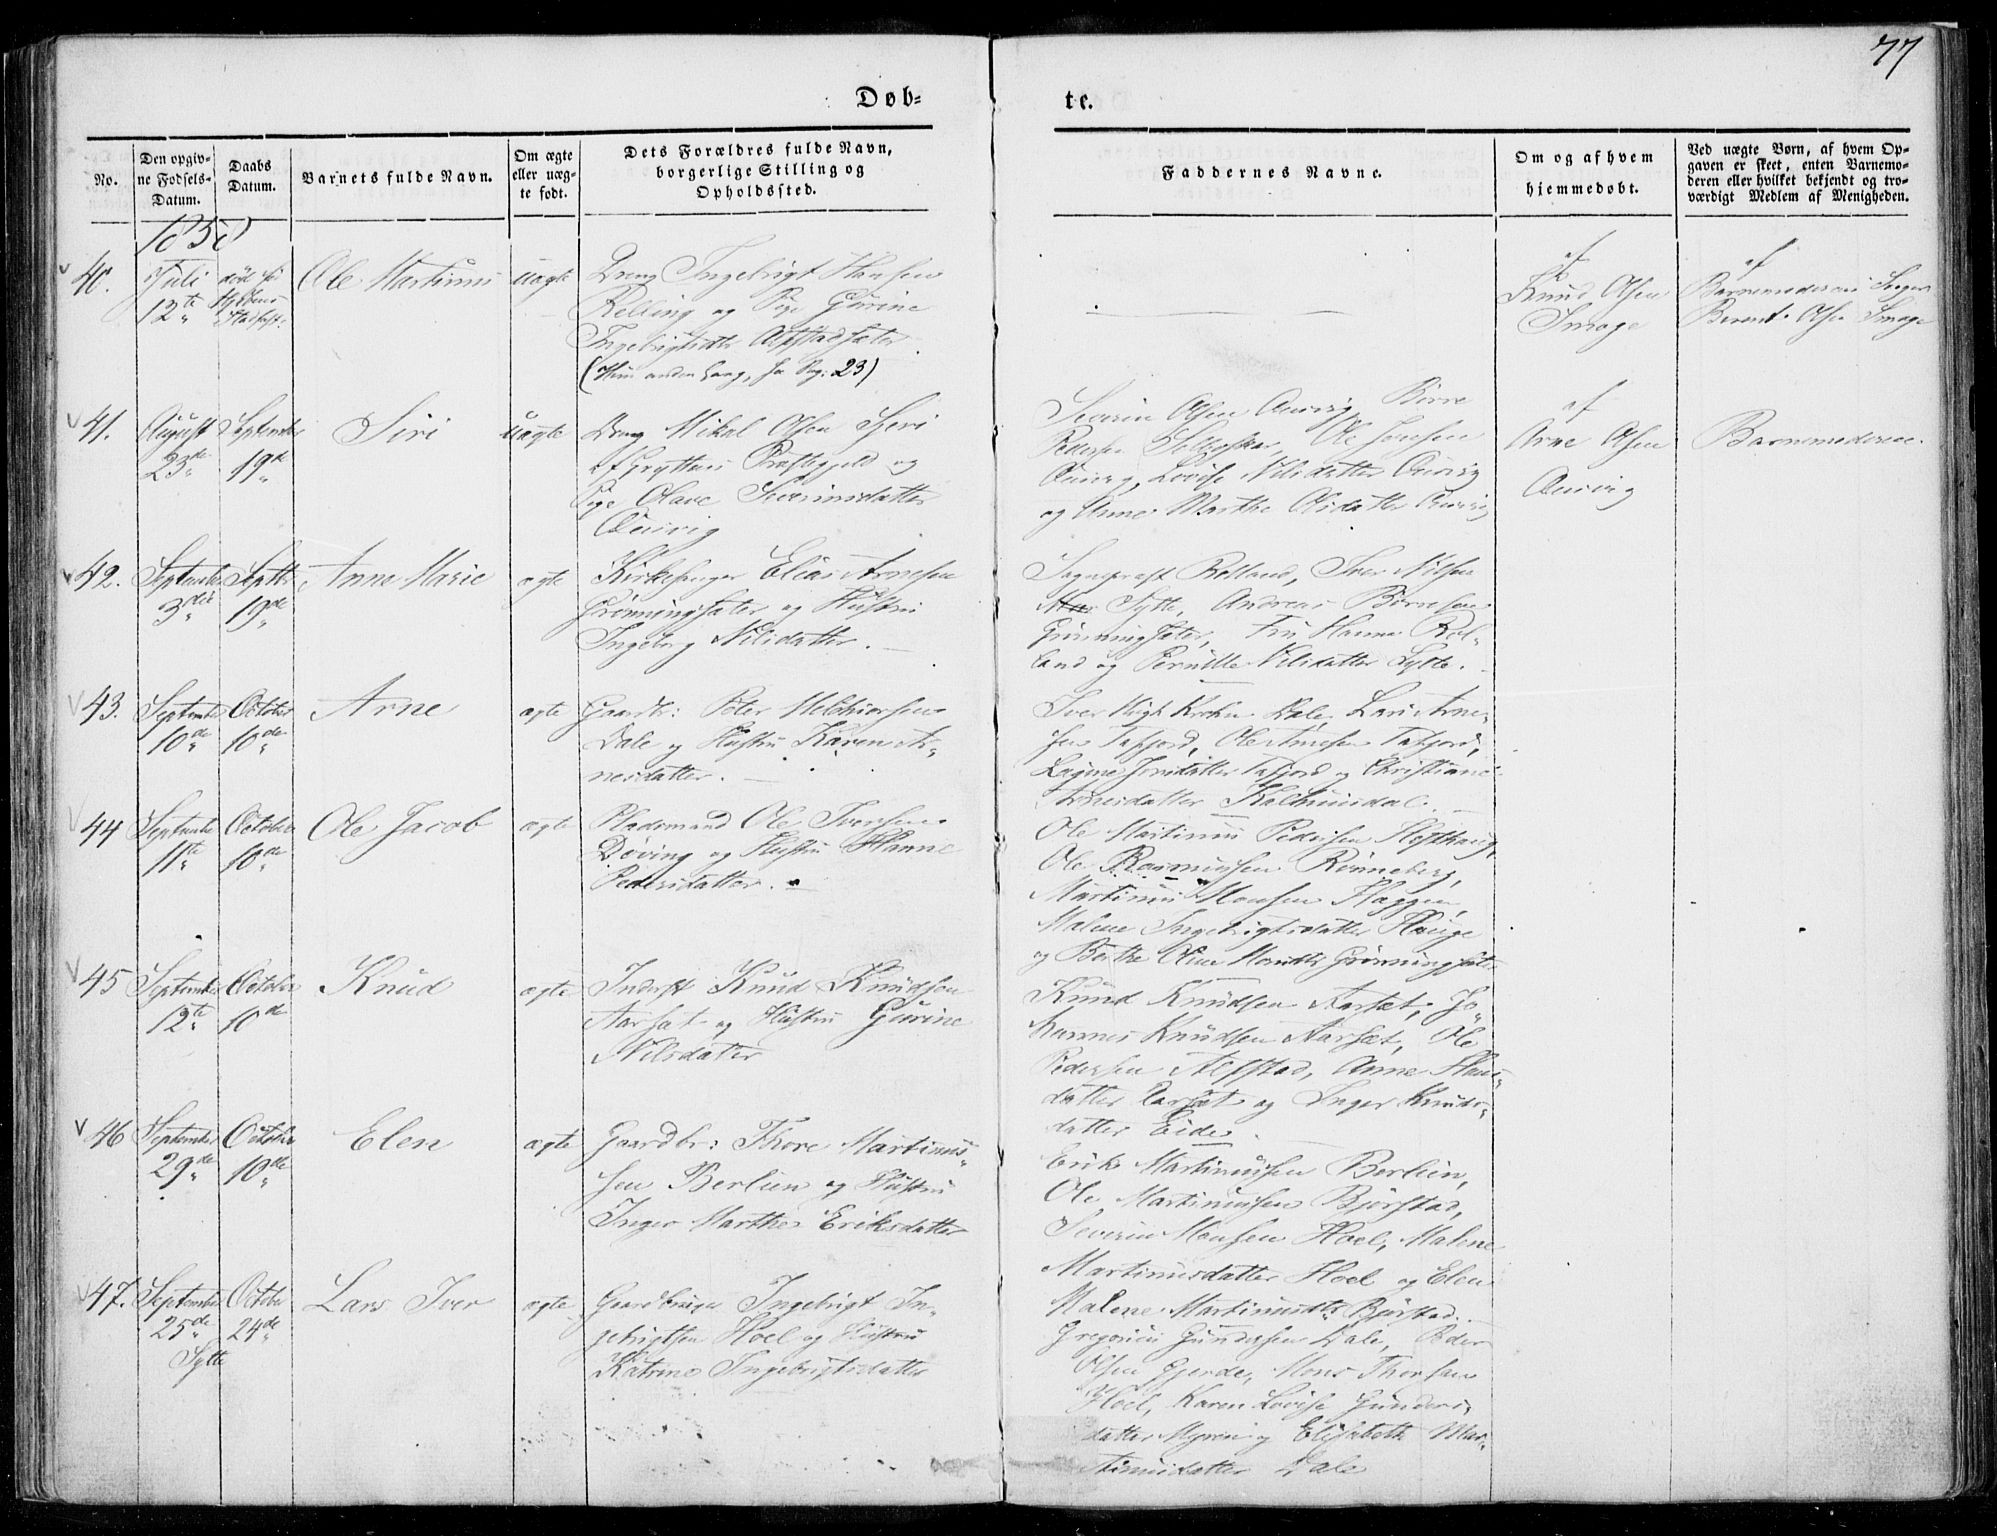 77
Døb=
te.
No.
Den opgiv-
ne Fødsels-
Datum.
Daabs
Datum.
Barnets fulde Navn.
Om ægte
eller uæg-
te født.
Dets Forældres fulde Navn,
borgerlige Stilling og
Opholdssted.
Faddernes Navne.
Om og af hvem
hjemmedøbt.
Ved uægte Børn, af hvem Op-
gaven er skeet, enten Barnemo-
deren eller hvilket bekjendt og tro-
værdigt Medlem af Menigheden.
1858
40.
Juli
12te
Ole Martinus
uægte
Dreng Ingebrigt Hansen
Relling og Pige Gurine
(Hun anden Gang, see Pag: 23)
af
Knud Olsen
Smoge
af
Berent Olsen Smoge
41.
August
23de
September
19de
Siri
uægte
Dreng Mikal Olsen
af Gryttens Præstegjeld og
Pige Olave Severinsdatter
Ourvig
Severin Olsen Ourvig, Børre
Pedersen Selboskar, Ole Jensen
Ourvig, Lovise Nilsdatter Ourvig
og Anne Marthe Olsdatter Ourvig
af
Arne Olsen
Ourvig
Barnemoderen.
42.
September
3die
Septbr
19de
Anne Marie
ægte
Kirkesanger Elias Arnesen
Grønningsæter og Hustru
Ingeborg Nilsdatter.
Sognepræst Rolland, Iver Nilsen
Sylte, Andreas Børresen
Grønningsæter, Fru Hanna Rol-
land og Pernille Nilsdatter Sylte.
43.
September
10de
October
10de
Arne
ægte
Gaardbr: Peter Melchiorsen
Dale og Hustru Karen Ar-
nesdatter.
Iver Krohn Dale, Lars Arne-
sen Tafjord, Ole Arnesen Tafjord,
Jonsdatter Tafjord og Christiane
Arnesdatter Kalhusdal.
44
September
11te
October
10de
Ole Jacob
ægte
Pladsmand Ole Iversen
Døving og Hustru Hanne
Pedersdatter.
Ole Martinus Pedersen Hofthaug,
Ole Rasmussen Rønneberg,
Martinus Monsen Flaggen,
Malene Ingebrigtsdatter Hauge
og Berthe Oline Grønningsæter
45
September
12te
October
10de
Knud
ægte
Inderst Knud Knudsen
Aarsæt og Hustru Gurine
Nilsdatter
Knud Knudsen Aarsæt, Jo-
hannes Knudsen Aarsæt, Ole
Pedersen Alfstad, Anne Hans-
datter Aarsæt og Inger Knuds-
datter Eide.
46
September
29de
October
10de
Elen
ægte
Gaardbr: Thore Martinus-
sen Berlien og Hustru
Inger Marthe Eriksdatter
Erik Martinussen Berlien,
Ole Martinussen Bjørstad,
Severin Monsen Hoel, Malene
Martinusdatter Hoel og Elen
Malene Martinusdtr Bjørstad.
47.
September
25de
Sylte
October
24de
Lars Iver
ægte
Gaardbruger Ingebrigt In-
gebrigtsen Hoel og Hustru
Katrine Ingebrigtsdatter
Gregorius Gundersen Dale, Peder
Olsen Gjerde, Mons Thorsen
Hoel, Karen Lovise Gunders-
datter Myren og Elisabeth Mar-
tinusdatter Dale